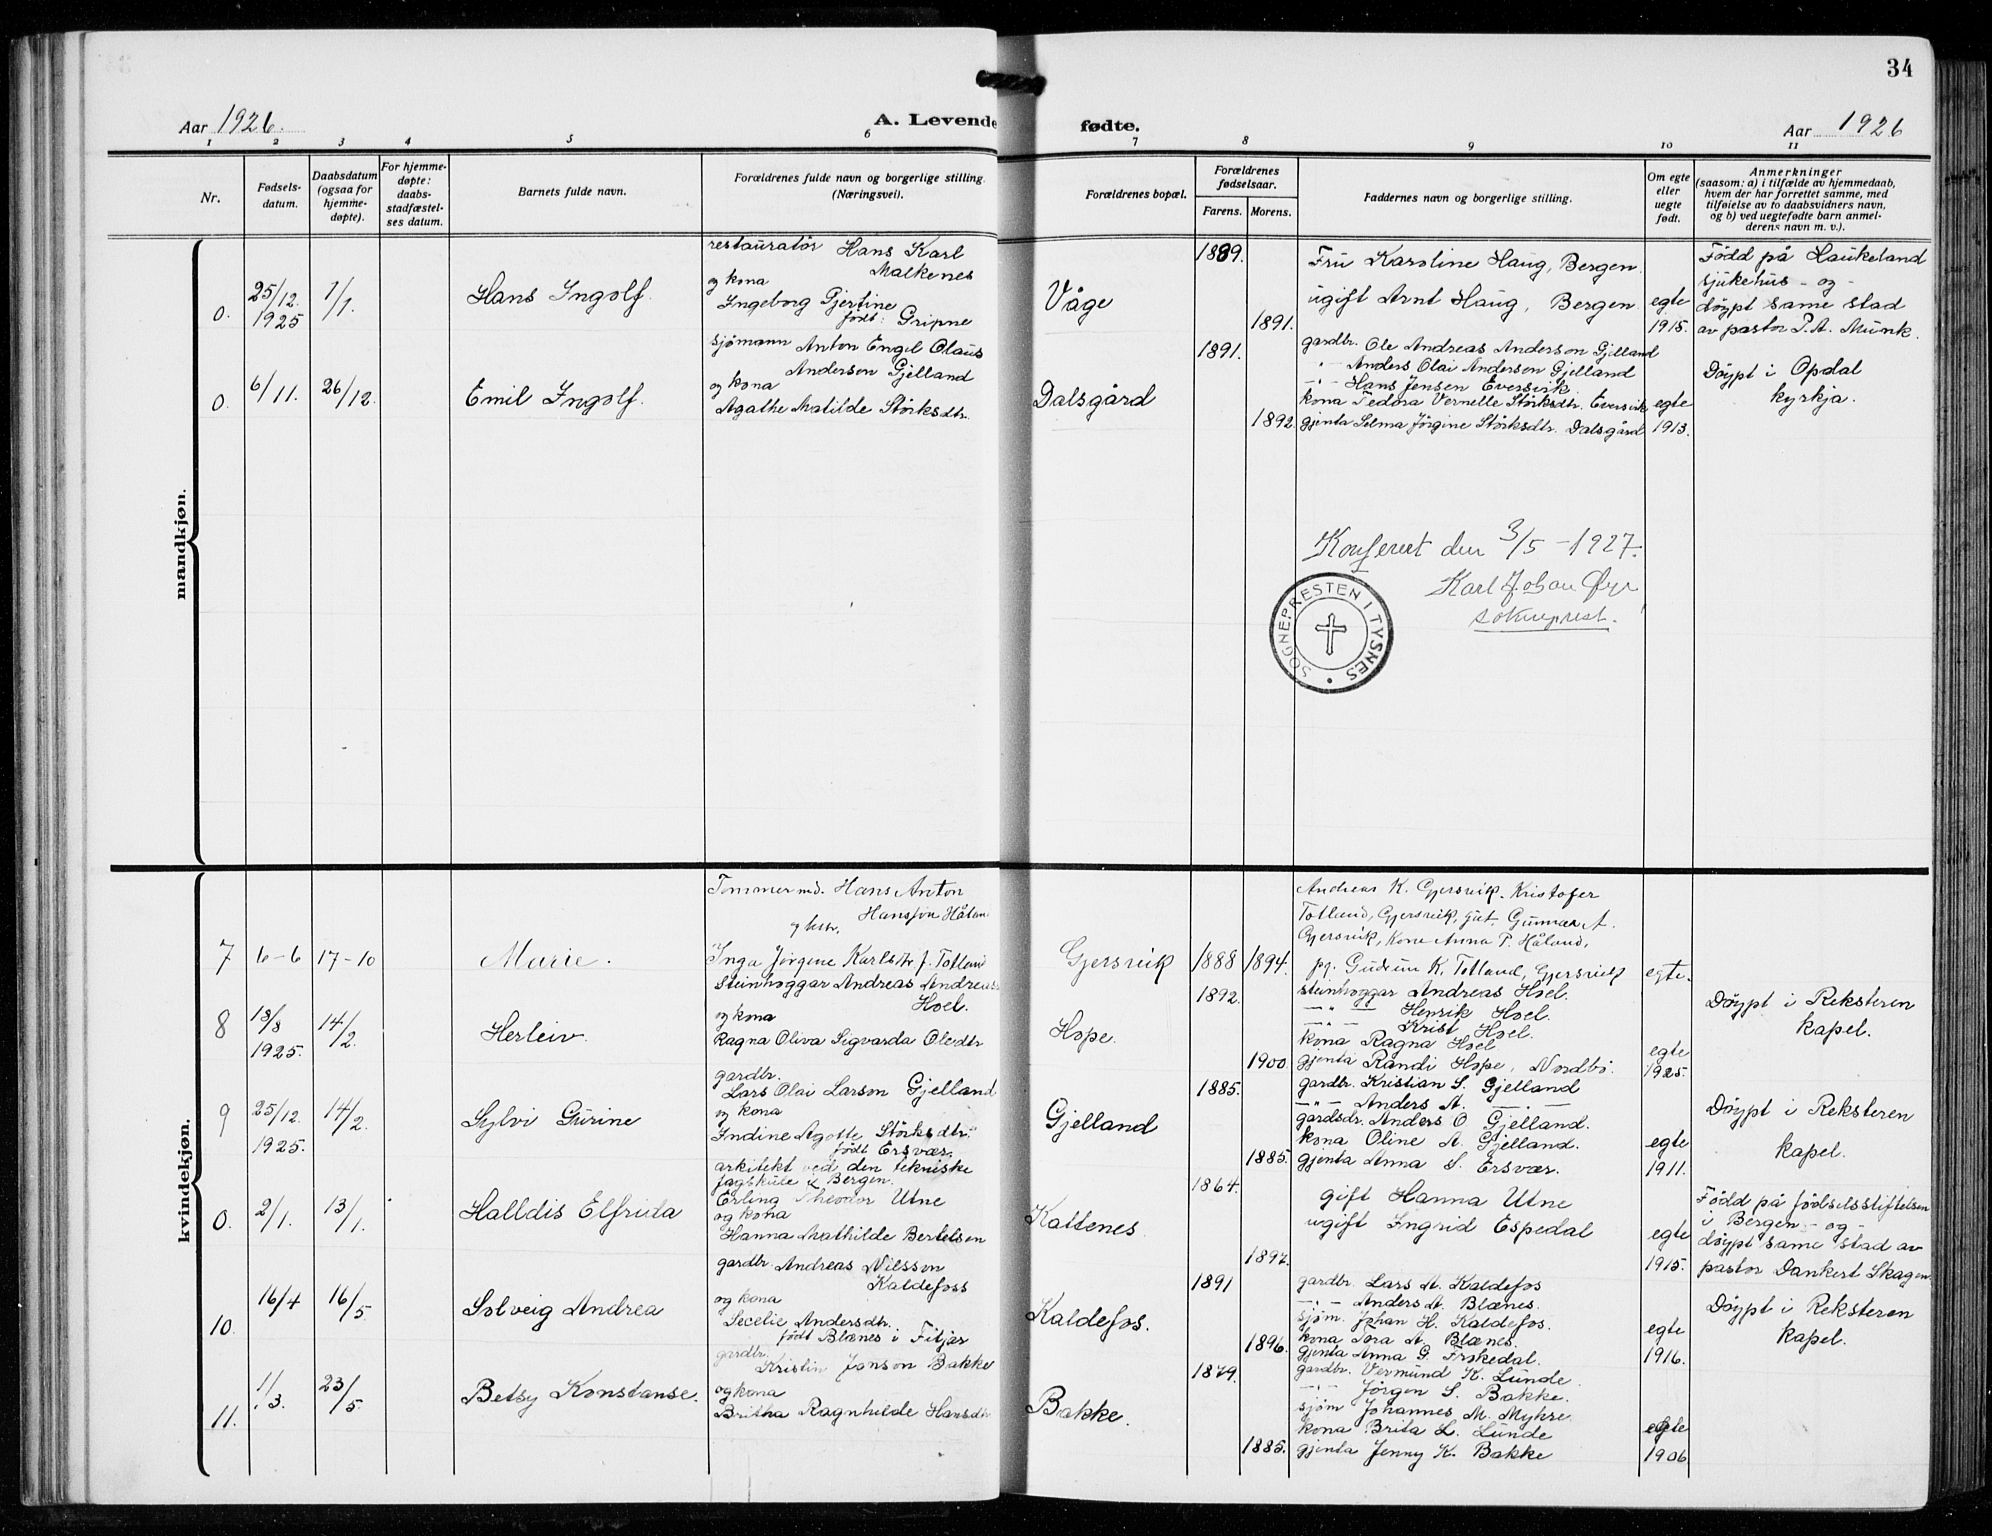 34
Aar 1926.
A. Levende fødte.
Aar 1926
1 2 3 4 5 6 7 8 9 10 11
Nr.
Fødsels-
datum.
Daabsdatum
(ogsaa for
hjemme-
døpte).
For hjemme-
døpte:
daabs-
stadfæstel-
ses datum.
Barnets fulde navn.
Forældrenes fulde navn og borgerlige stilling
(Næringsvei).
Forældrenes bopæl.
Forældrenes
fødselsaar.
Farens. Morens.
Faddernes navn og borgerlige stilling.
Om egte
eller
uegte
født.
Anmerkninger
(saasom: a) i tilfælde av hjemmedaab,
hvem der har forrettet samme, med
tilføielse av to daabsvidners navn,
og b) ved uegtefødte barn anmel-
derens navn m. v.).
mandkjøn.
0.
25/12.
1925
1/1.
Hans Ingolf.
restauratør Hans Karl
Malkenes
og kona
Ingeborg Gjertine
født: Gripne
Våge
1889.
1891.
Fru Karoline Haug, Bergen.
ugift Arnt Haug, Bergen
egte
1915.
Fødd på Haukeland
sjukehus - og -
døypt same stad
av pastor P. A. Munk.
0.
6/11.
26/12.
Emil Ingolf.
sjømann Anton Engel Olaus
Anderson Gjelland
og kona
Agathe Matilde Störksdtr.
Dalsgård
1891.
1892.
gardbr. Ole Andreas Anderson Gjelland
- " - Anders Olai Anderson Gjelland
- " - Hans Jensen Eversvik.
kona Fedora Vernelle Störksdtr. Eversvik
gjenta Selma Jörgine Störksdtr. Dalsgård
egte
1913.
Döypt i Opdal
kyrkja.
Konferert den 3/5 - 1927.
Karl Johan Øyr
sokneprest.
SOGNEPRESTEN I TYSNES
kvindekjøn.
7
6-6
17-10
Marie.
Tømmermd. Hans Anton
Hansson Håland
og hstr.
Inga Jørgine Karlsdtr f. Totland
Gjersvik
1888
1894.
Andreas K. Gjersvik. Kristofer
Totland, Gjersvik, gut. Gunnar A.
Gjersvik, Kone Anna P. Håland,
pg. Gudrun K. Totland, Gjersvik
egte.
8
13/8
1925.
14/2.
Herleiv.
steinhoggar Andreas Andreass.
Hoel.
og kona
Ragna Oliva Sigvarda Olsdtr
Hope.
1892.
1900.
steinhoggar Andreas Hoel.
- " - Henrik Hoel.
- " - Krist Hoel.
kona Ragna Hoel
gjenta Randi Hope, Nordbö.
egte
1925.
Döypt i Reksteren
kapel.
9
25/12
1925.
14/2.
Sylvi Gurine
gardbr.
Lars Olai Larson Gjelland
og kona
Indine Agotte Störksdtr.
født Ersvær.
Gjelland
1885.
1885.
gardbr. Kristian S. Gjelland
- " - Anders A. - " -
gardsdr. Anders O Gjelland.
kona Oline A. Gjelland.
gjenta Anna S. Ersvær.
egte
1911.
Döypt i Reksteren
kapel.
0.
2/1.
13/1.
Halldis Elfrida
arkitekt ved den tekniske
fagskule i Bergen.
Erling Theodor Utne
og kona
Hanna Mathilde Bertelsen
Kattenes
1864.
1897.
gift Hanna Utne
ugift Ingrid Espedal
egte
1915.
Fødd på fødselsstiftelsen
i Bergen - og -
døypt same stad av
pastor Dankert Skagen.
10.
16/4
16/5.
Solveig Andrea
gardbr. Andreas Nilsson
Kaldefoss
og kona
Secelie Andersdtr.
født Blænes i Fitjar
Kaldefos.
1891
1896.
gardbr. Lars A. Kaldefos
- " - Anders A. Blænes.
sjøm. Johan H. Kaldefos.
kona Tora A. Blænes.
gjenta Anna G. Frøkedal.
egte
1916.
Döypt i Reksteren
kapel.
11.
1/3.
23/5.
Betsy Konstanse.
gardbr.
Kristin Janson Bakke
og kona
Britha Ragnhilde Hansdtr
Bakke.
1879.
1885.
gardbr. Vermund K. Lunde.
- " - Jörgen S. Bakke.
sjøm Johannes M. Myhre.
kona Brita L. Lunde
gjenta Jenny K. Bakke
egte
1906